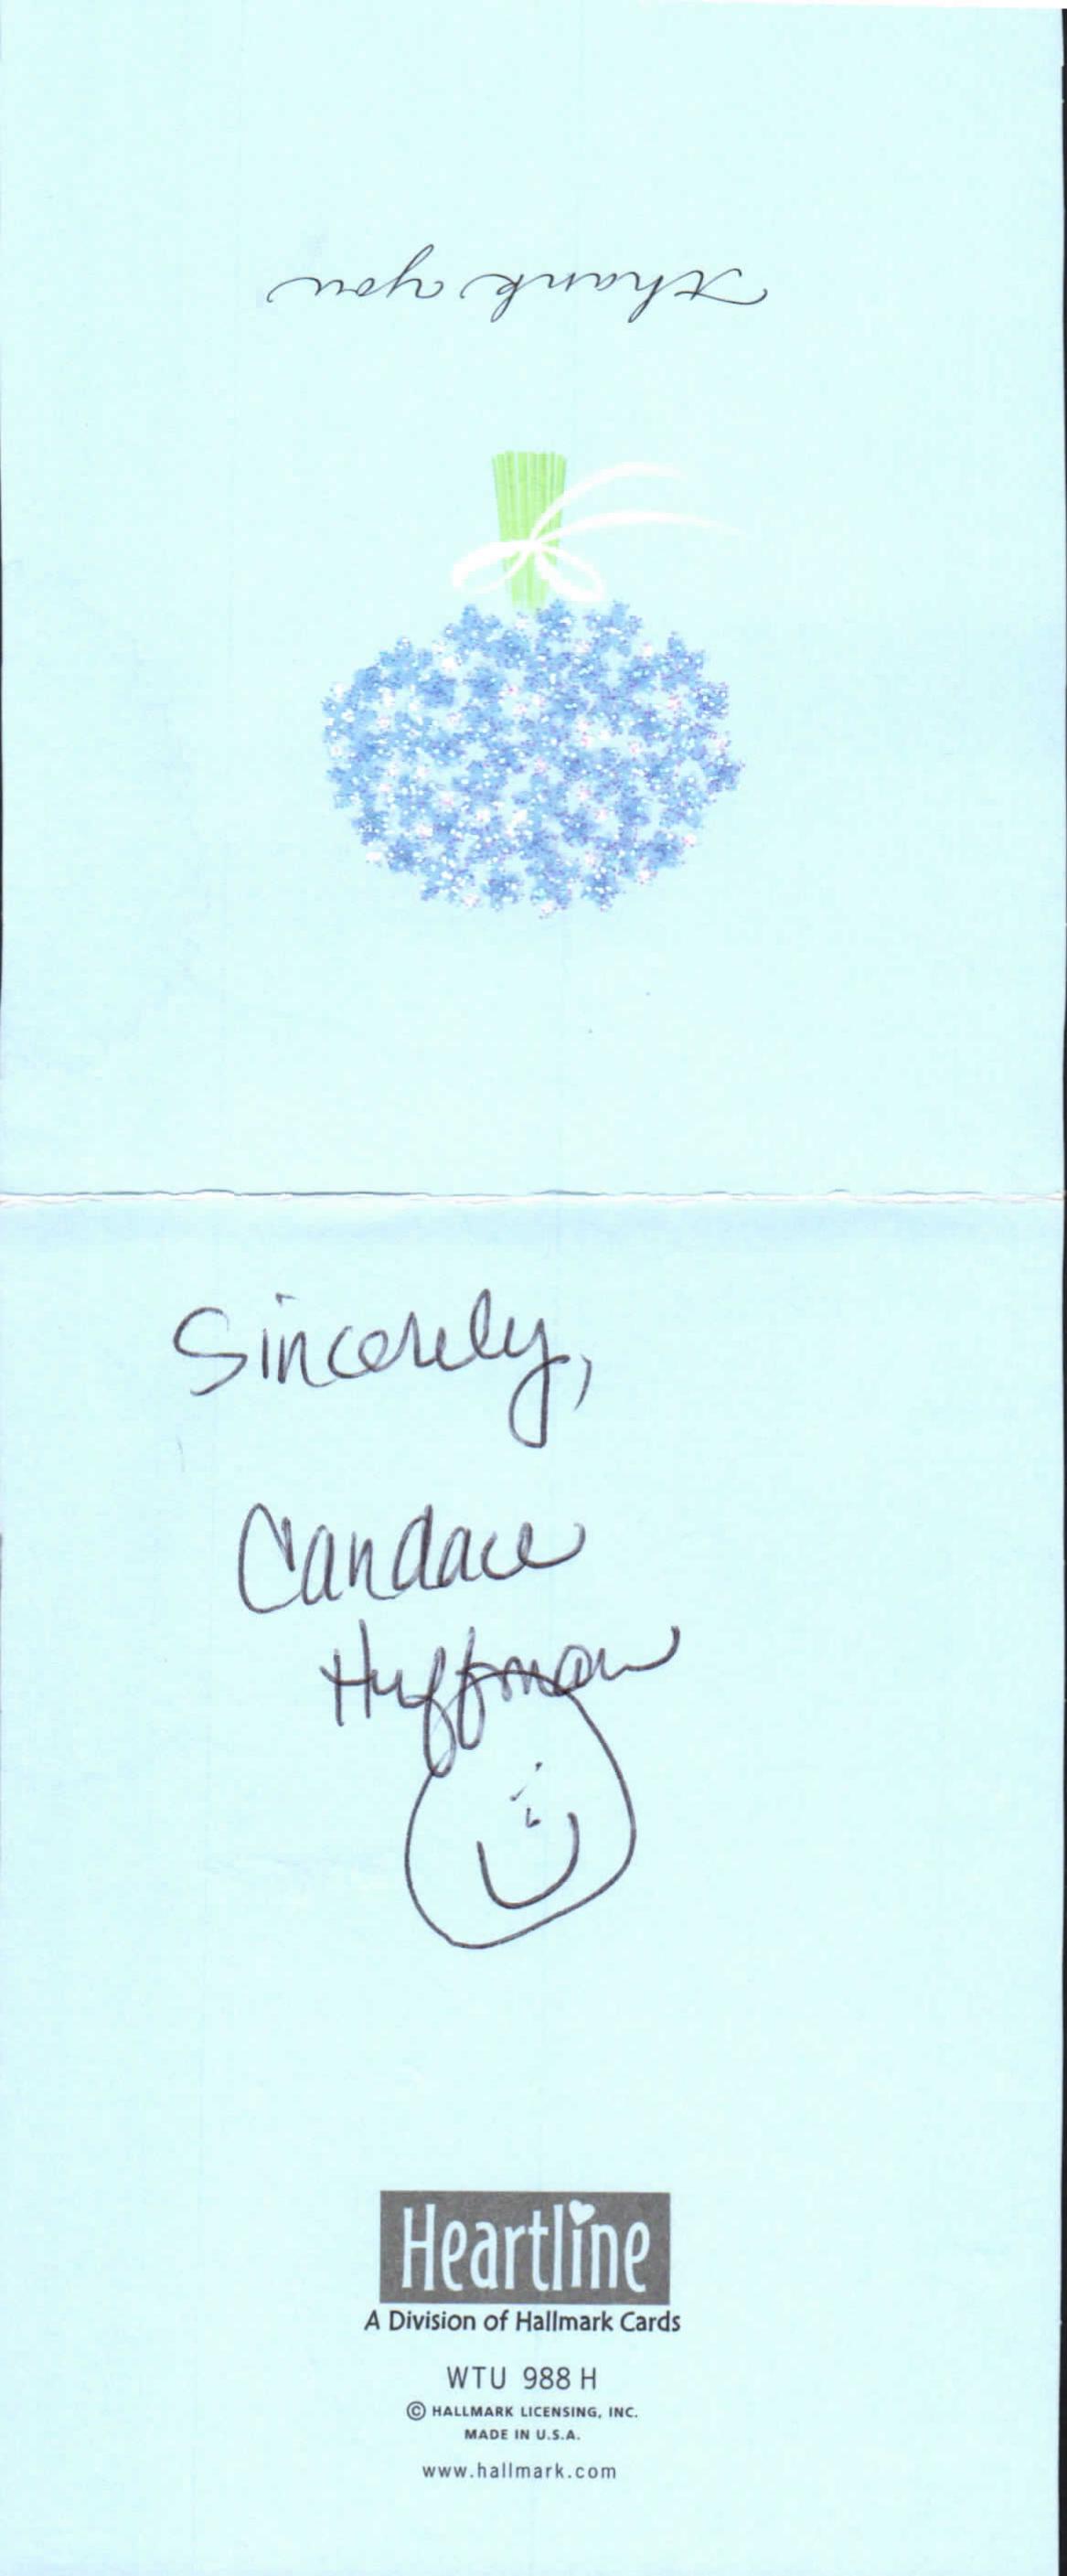 thank you
Sincerely,
Candace
Huffman
Heartline
A Division of Hallmark Cards
WTU 988 H
© HALLMARK LICENSING, INC.
MADE IN U.S.A.
www.hallmark.com